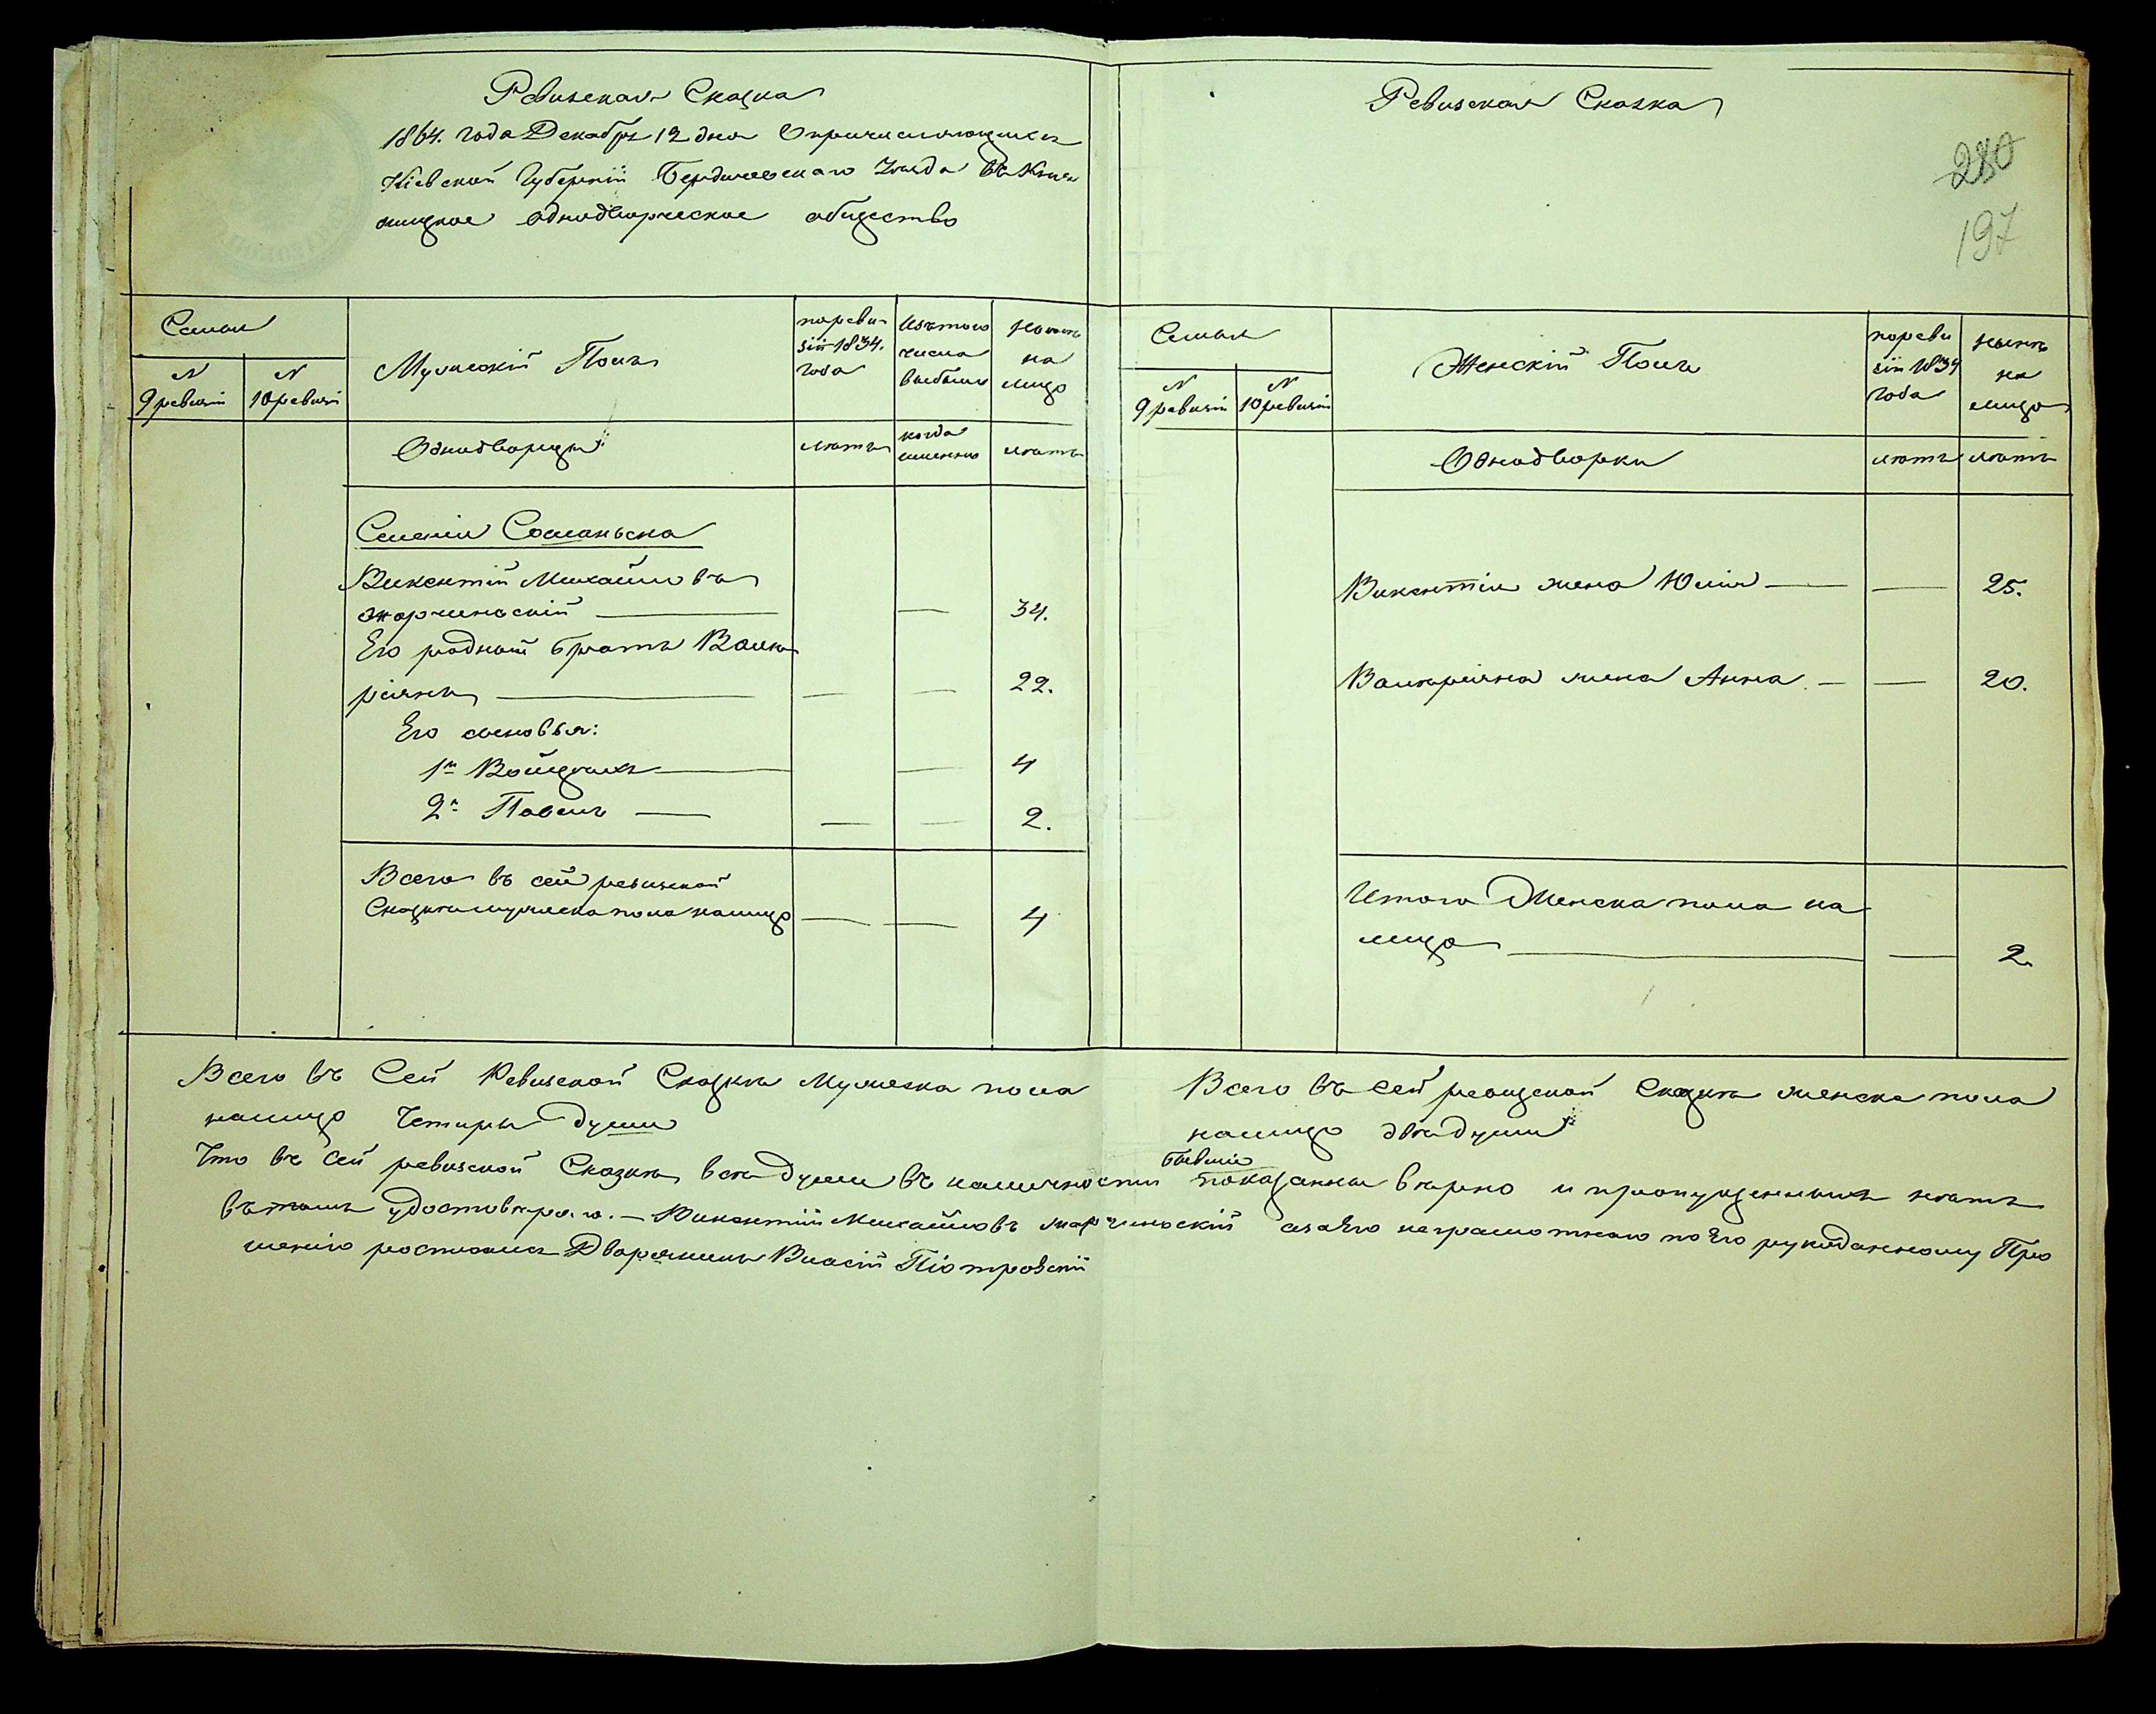 Ревизская Сказка
1864. года Декабря 12 дня О причисляющихся
Кіевской Губерніи Бердичевскаго Уезда въ Кня
жицкое однодворческое общество
Семьи
N
9 ревизіи
N
10 ревизіи
Мужескій Полъ
по реви
зіи 1834.
года
Изъ того
числа
выбыли
Нынѣ
на
лицо
Однодворцы
лѣтъ
когда
именно
лѣтъ
Селенія
Викентій Михайловъ
Жарчинскій 34.
Его родный братъ Валѣ
ріянъ 22.
Его сыновья:
1й Войцехъ 4
2й Павелъ 2.
Всего въ сей ревизской
Сказкѣ мужеска пола налицо 4
Ревизская Сказка
280
197
Семьи
N
9 ревизіи
N
10 ревизіи
Женскій Полъ
по реви
зіи 1834
года
нынѣ
на
лицо
Однодворки
лѣтъ
лѣтъ
Викентія жена Юлія 25.
Валѣріяна жена Анна 20.
Итого Женска пола на
лицо 2.
Всего въ Сей Ревизской Сказкѣ Мужеска пола
налицо Четыры души
Всего въ сей ревизской Сказкѣ женска пола
налицо двѣ души
Что въ сей ревизской Сказкѣ всѣ души въ наличности бывшіе показанны вѣрно и пропущенныхъ нѣтъ
въ томъ удостовѣряю. – Викентій Михайловъ Жарчинскій а за Его неграмотнаго по Его рукоданному Про
шенію росписался Дворянинъ Піотровскій